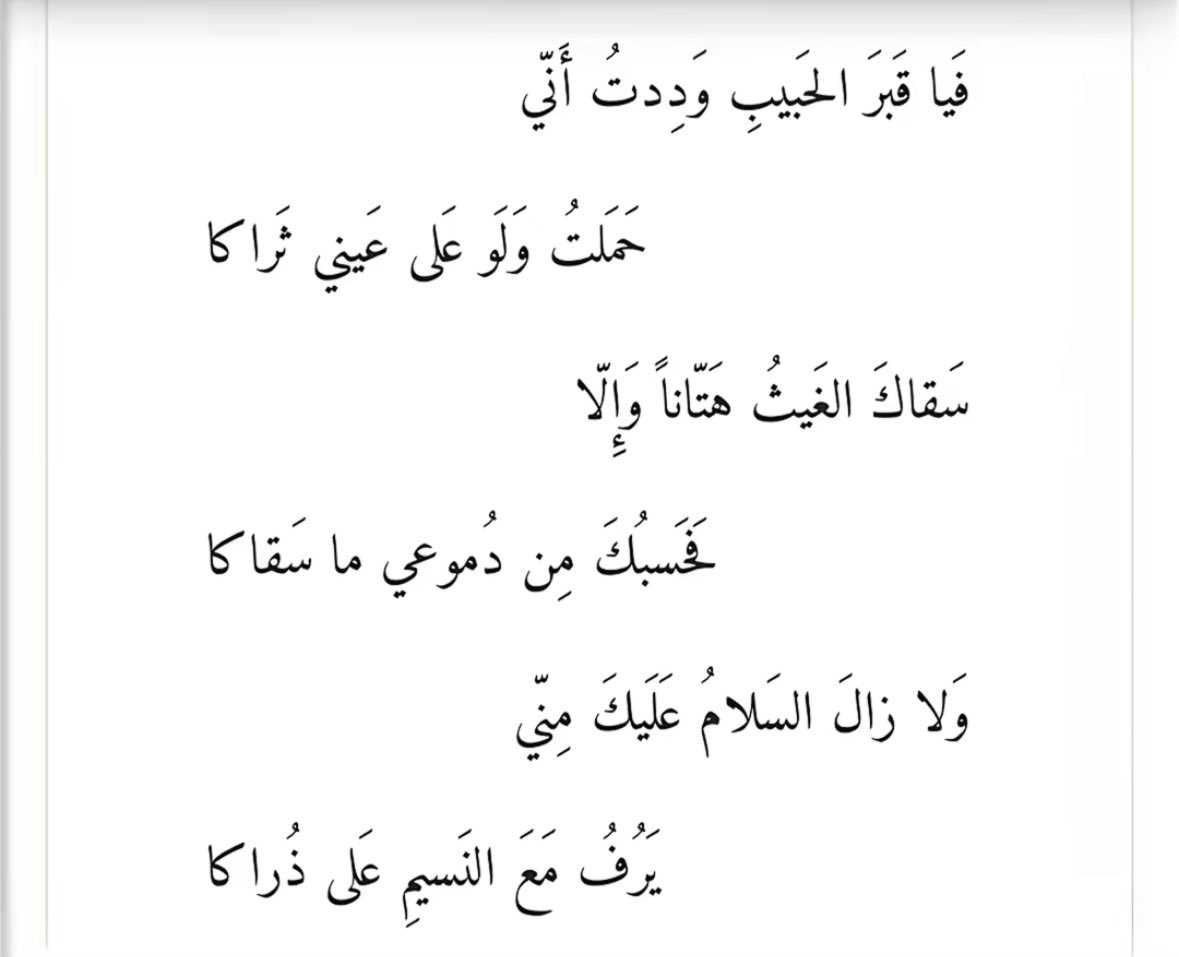 فَيا قَبرَ الحَبيبِ وَدِدتُ أَنّي
حَمَلتُ وَلَو عَلى عَيني ثَراكا
سَقاكَ الغَيثُ هَتّاناً وَإِلّا
فَحَسبُكَ مِن دُموعي ما سَقاكا
وَلا زالَ السَلامُ عَلَيكَ مِنّي
يَرُفُ مَعَ النَسيمِ عَلى ذُراكا